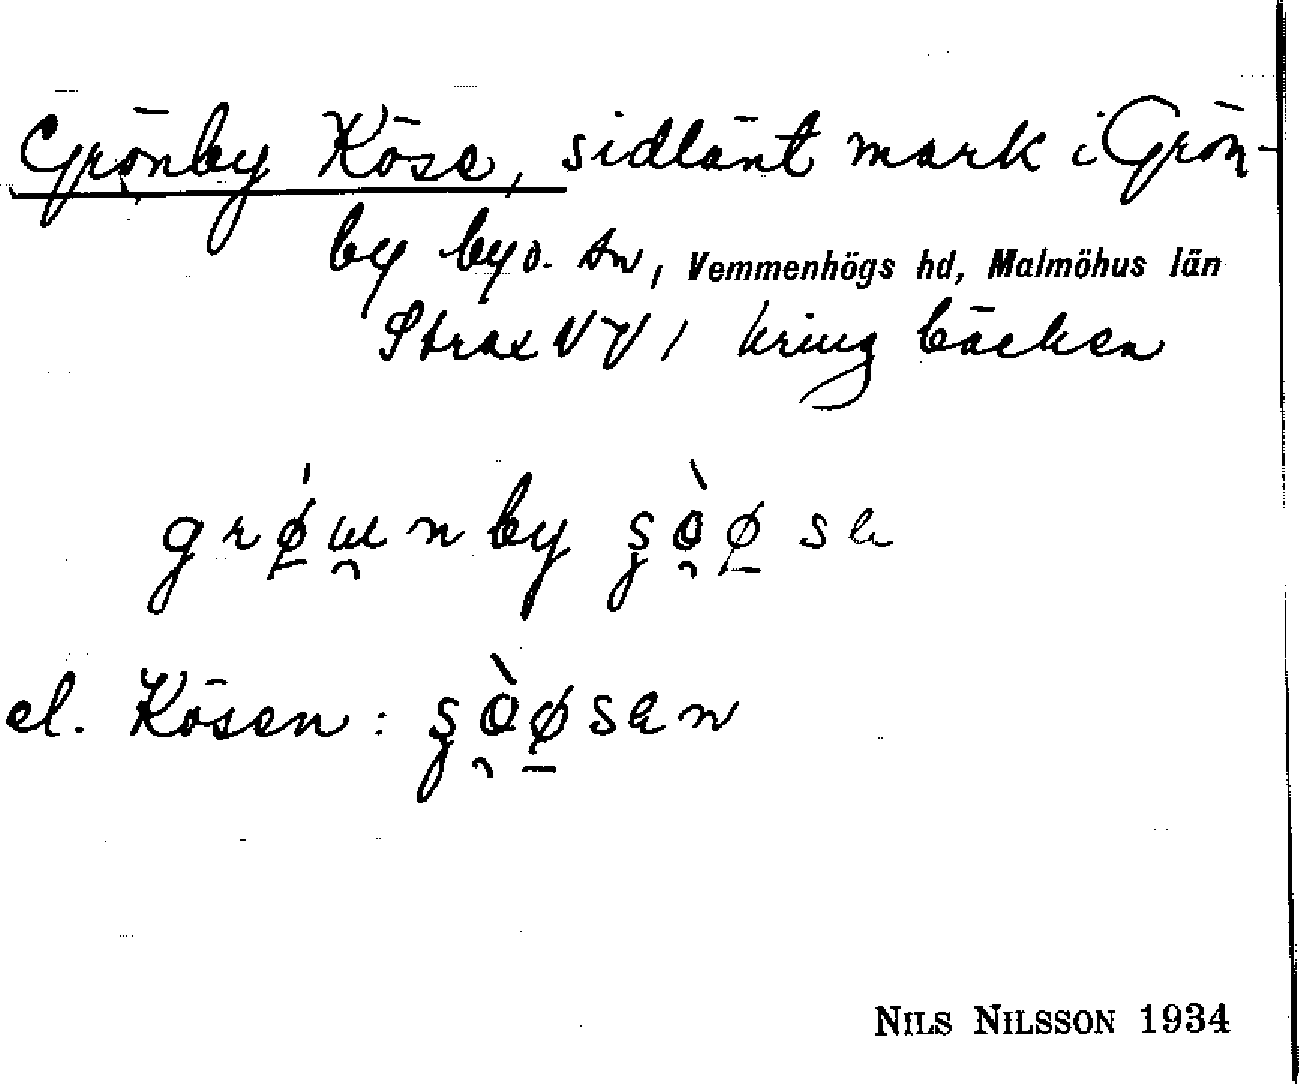 Grönby Köse, sidlänt mark i Grön-
by by o. sn, Vemmenhögs hd, Malmöhus län
Strax NV, kring bäcken
el. Kösen:
NILS NILSSON 1934